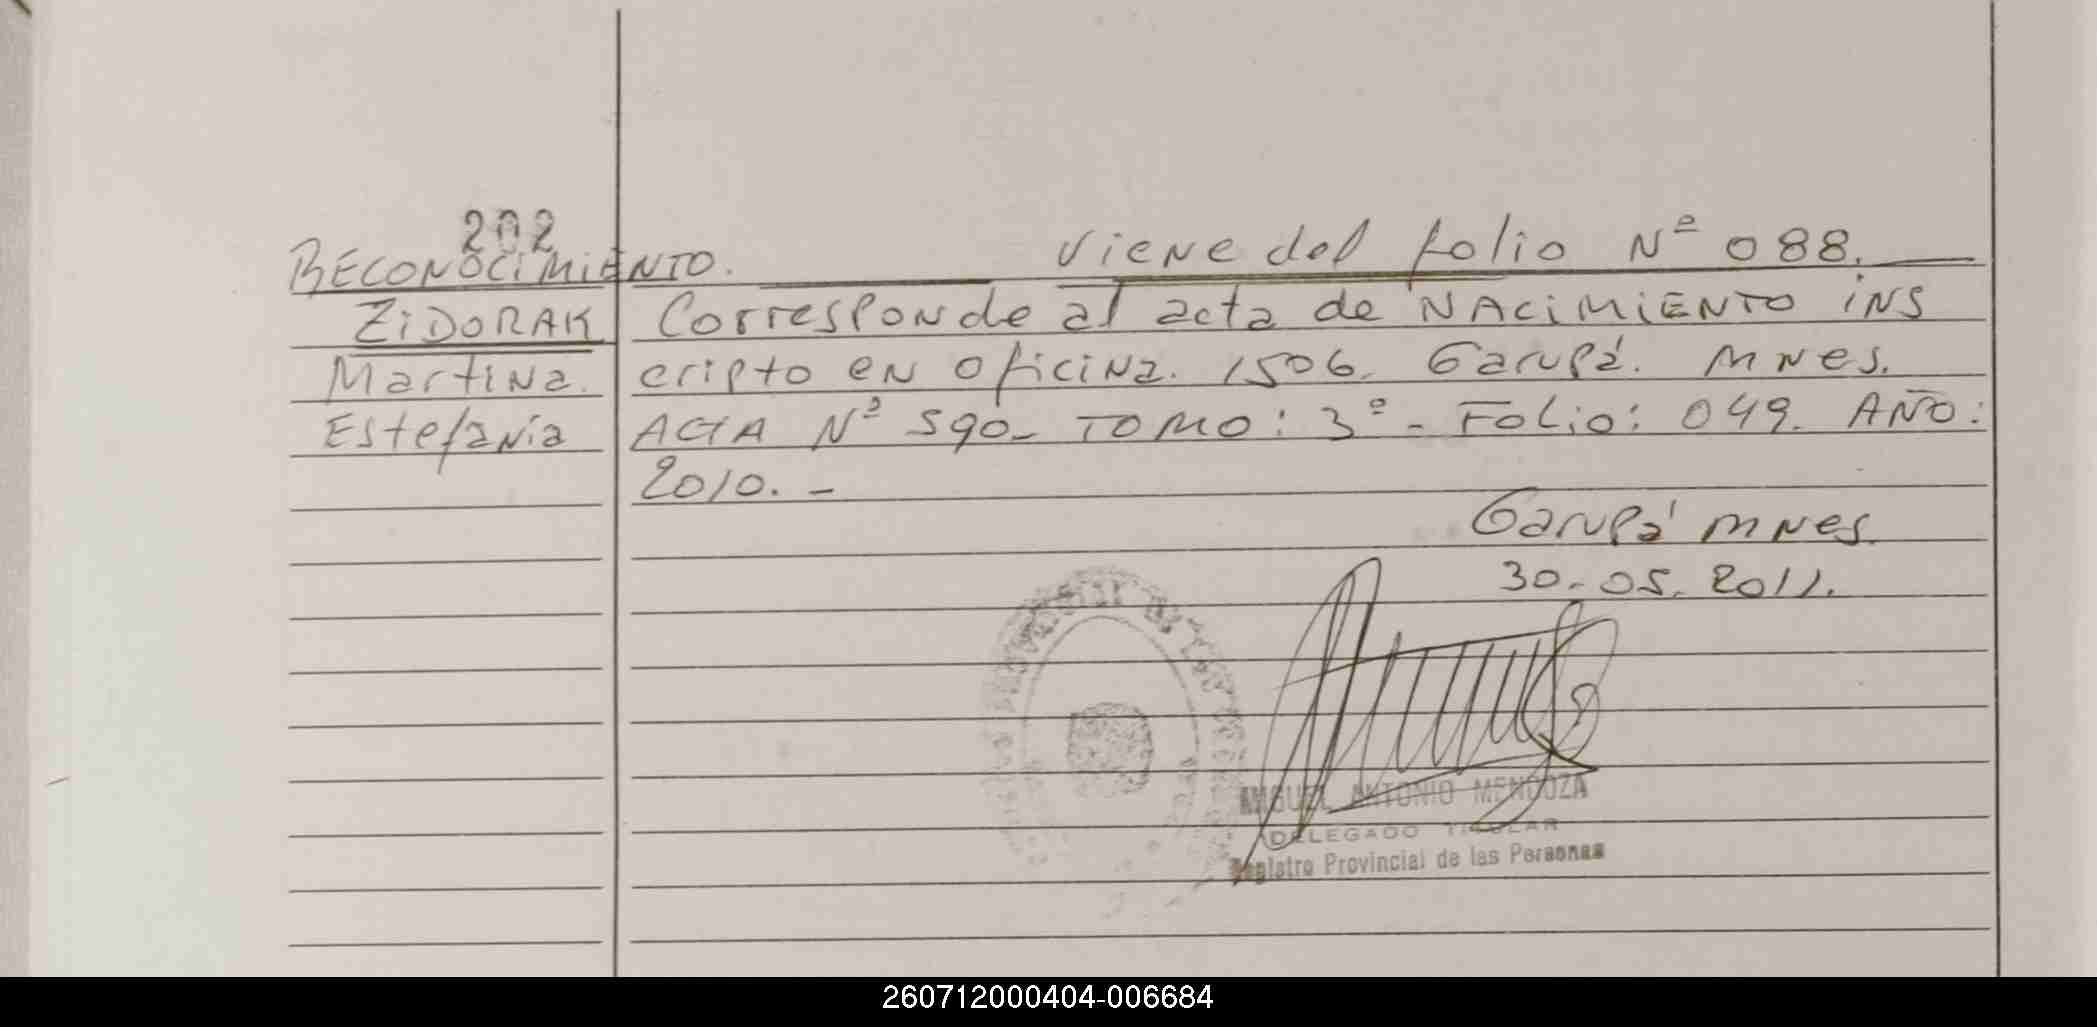 202
RECONOCIMIENTO. Viene del folio Nº 088.
ZIDORAK Corresponde al acta de NACIMIENTO ins
Martina. cripto en Oficina. 1506. Garupá. Mnes.
Estefanía ACTA Nº 590_ TOMO: 3º - Folio: 049. AÑO:
2010. -
Garupá Mnes.
30-05. 2011.
MIGUEL ANTONIO MENDOZA
DELEGADO TITULAR
Registro Provincial de las Personas
260712000404-006684